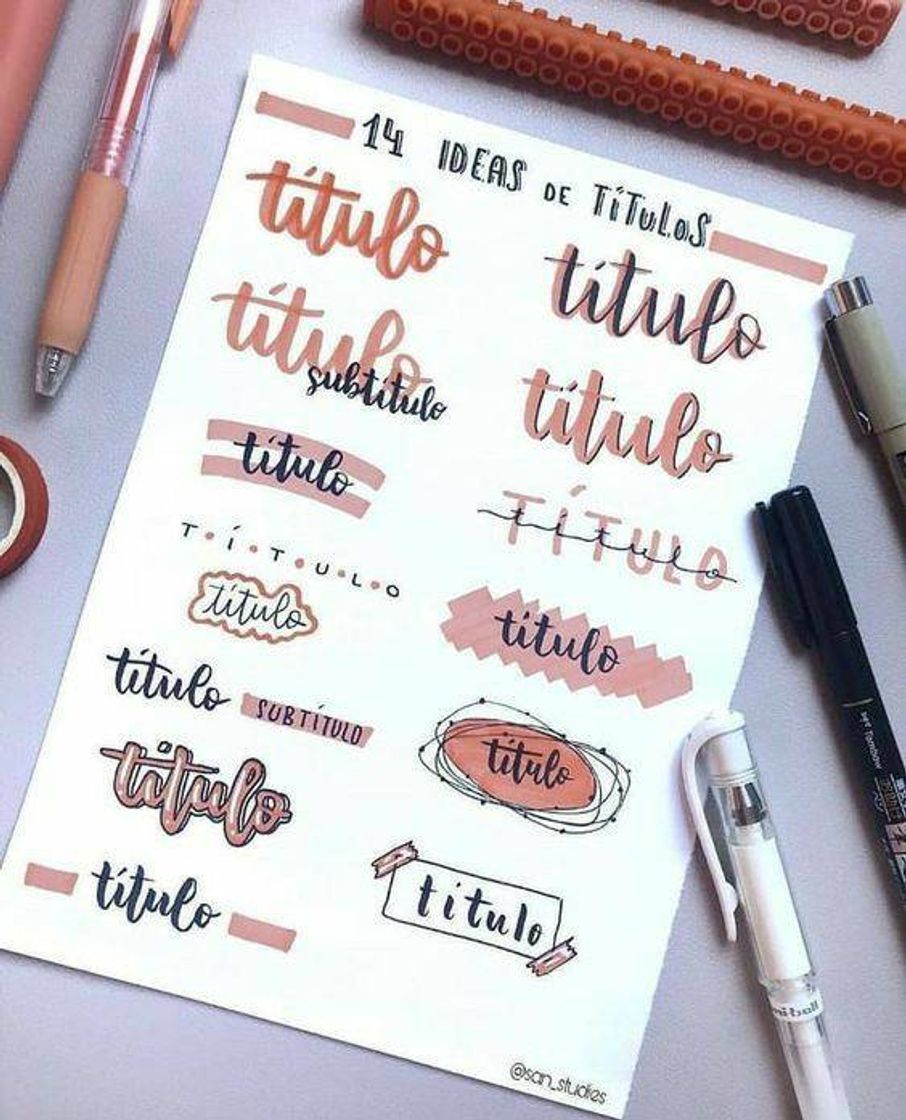 14 IDEAS DE TÍTULOS
título
título
subtítulo
título
T•Í•T•U•L•O
título
título SUBTÍTULO
título
título
título
título
TÍTULO
título
título
título
título
@san_studies
Tombow
uni-ball